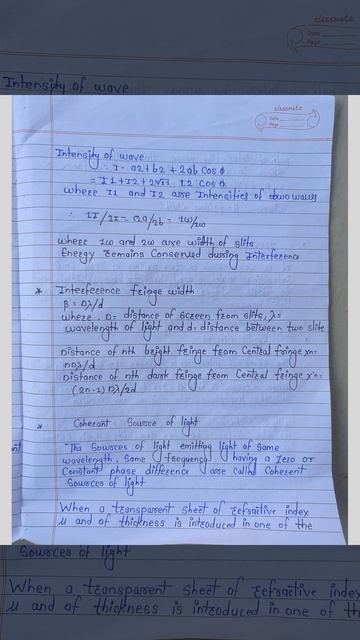 classmate
Date
Page
Intensity of wave
classmate
Date
Page
Intensity of wave
∴ I = a2+b2 + 2ab Cos ϕ
= I1+I2+2√I1 I2 Cos ϕ
where I1 and I2 are Intensities of two waves
∴ 1I/2I = 02a/2b = 1w/2w
where 1w and 2w are width of slits
Energy remains Conserved during interference
* Interference fringe width
β = Dλ/d
where, D = distance of screen from slits, λ =
wavelength of light and d = distance between two slits
Distance of nth bright fringe from Central fringe xn =
nDλ/d
Distance of nth dark fringe from Central fringe x'n =
(2n-1) Dλ/2d
* Coherant Source of light
The Sources of light emitting light of Same
wavelength, Same frequency having a zero or
Constant phase difference are Called Coherent
Sources of light
When a transparent sheet of refractive index
μ and of thickness is introduced in one of the
Sources of light
When a transparent sheet of refractive index
μ and of thickness is introduced in one of th